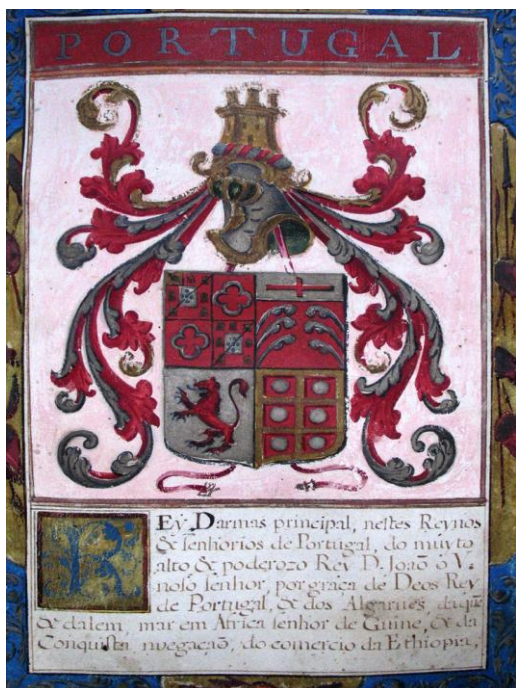 PORTUGAL
REŷ Darmas principal, nestes Reynos
& senhorios de Portugal, do muyto
alto & poderozo Rey D. Joaõ o V.
noso senhor, por graça de Deos Rey
de Portugal, & dos Algarues, daquẽ
& dalem, mar em Africa senhor de Guine, & da
Conquista nuegaçaõ, do comercio da Ethiopia,